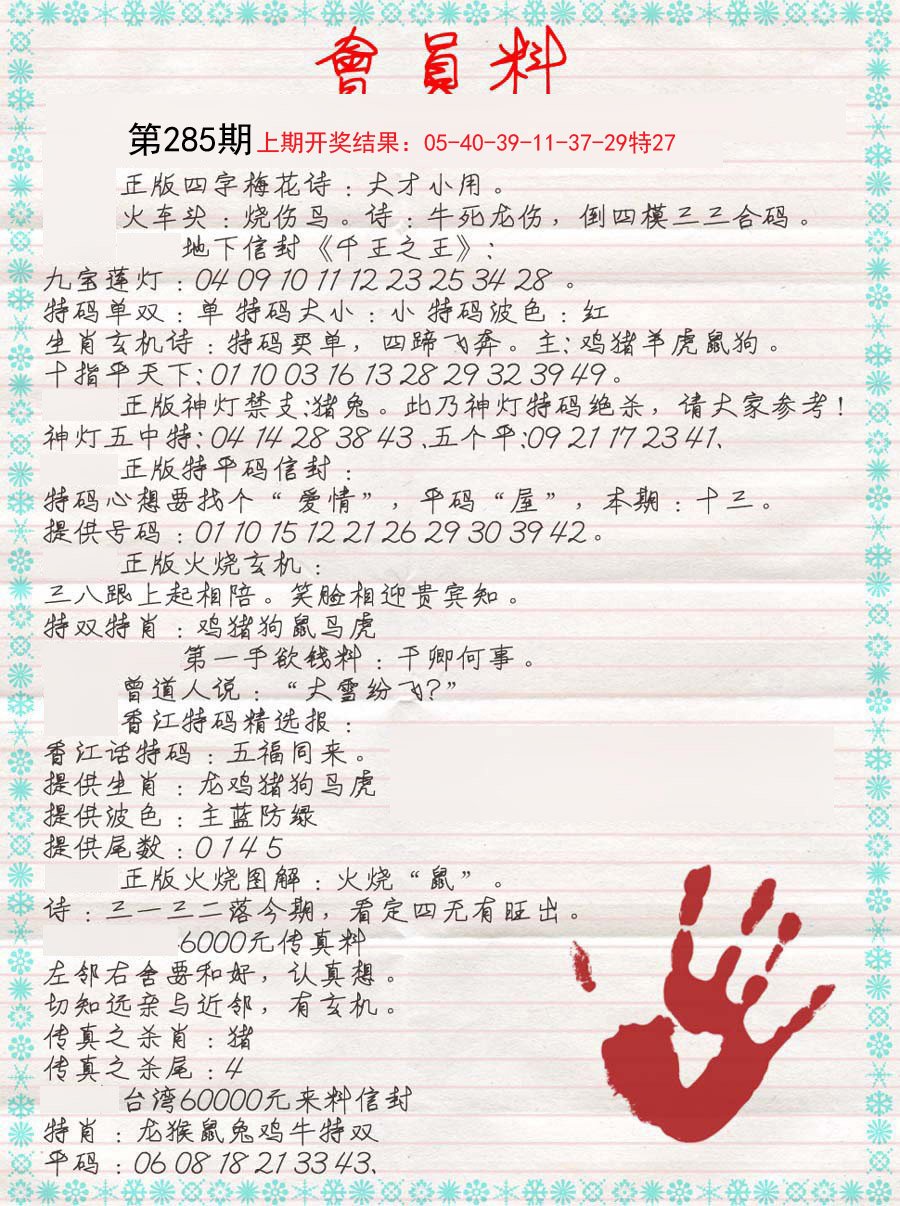 會員料
第285期上期开奖结果：05-40-39-11-37-29特27
正版四字梅花诗：大才小用。
火车头：烧伤鸟。诗：牛死龙伤，倒四模三三合码。
地下信封《千王之王》：
九宝莲灯：04 09 10 11 12 23 25 34 28 。
特码单双：单 特码大小：小 特码波色：红
生肖玄机诗：特码买单，四蹄飞奔。主：鸡猪羊虎鼠狗。
十指平天下：01 10 03 16 13 28 29 32 39 49。
正版神灯禁支：猪兔。此乃神灯特码绝杀，请大家参考！
神灯五中特：04 14 28 38 43 、五个平：09 21 17 23 41、
正版特平码信封：
特码心想要找个“爱情”，平码“屋”，本期：十三。
提供号码：01 10 15 12 21 26 29 30 39 42。
正版火烧玄机：
三八跟上起相陪。笑脸相迎贵宾知。
特双特肖：鸡猪狗鼠马虎
第一手欲钱料：干卿何事。
曾道人说：“大雪纷飞?”
香江特码精选报：
香江话特码：五福同来。
提供生肖：龙鸡猪狗马虎
提供波色：主蓝防绿
提供尾数：0 1 4 5
正版火烧图解：火烧“鼠”。
诗：三一三二落今期，看定四无有旺出。
6000元传真料
左邻右舍要和好，认真想。
切知远亲与近邻，有玄机。
传真之杀肖：猪
传真之杀尾：4
台湾60000元来料信封
特肖：龙猴鼠兔鸡牛特双
平码：06 08 18 21 33 43、